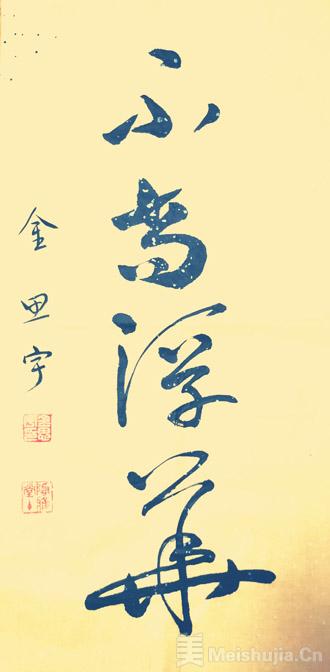 不尚浮華
金思宇
美 Meishujia.Cn